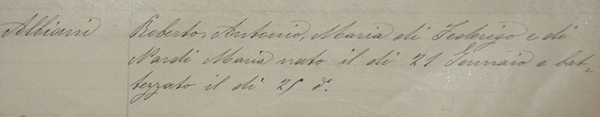 Albiani Roberto, Antonio, Maria di Federigo e di
Nardi Maria nato il di 21 Gennaio e bat=
tezzato il di 25 do.